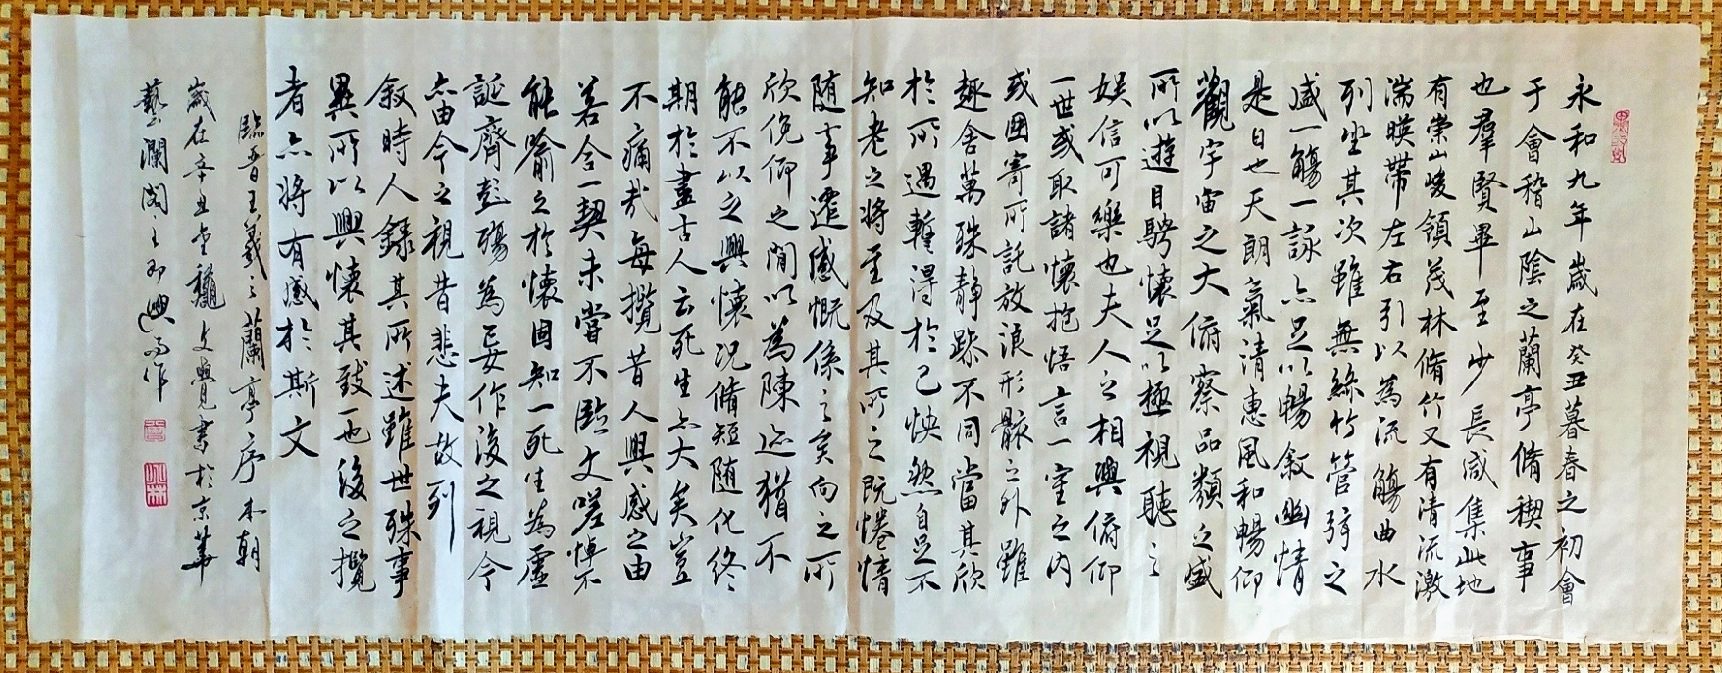 永和九年歲在癸丑暮春之初會
于會稽山陰之蘭亭脩稧事
也羣賢畢至少長咸集此地
有崇山峻領茂林脩竹又有清流激
湍暎帶左右引以為流觴曲水
列坐其次雖無絲竹管弦之
盛一觴一詠亦足以暢敘幽情
是日也天朗氣清惠風和暢仰
觀宇宙之大俯察品類之盛
所以遊目騁懷足以極視聽之
娛信可樂也夫人之相與俯仰
一世或取諸懷抱悟言一室之內
或因寄所託放浪形骸之外雖
趣舍萬殊靜躁不同當其欣
於所遇暫得於己怏然自足不
知老之將至及其所之既惓情
隨事遷感慨係之矣向之所
欣俛仰之閒以為陳迹猶不
能不以之興懷況脩短隨化終
期於盡古人云死生亦大矣豈
不痛哉每攬昔人興感之由
若合一契未嘗不臨文嗟悼不
能喻之於懷固知一死生為虛
誕齊彭殤為妄作後之視今
亦由今之視昔悲夫故列
敘時人錄其所述雖世殊事
異所以興懷其致一也後之攬
者亦將有感於斯文
臨晉王羲之蘭亭序本朝
歲在辛丑金龝文覺書於京華
藝瀾閣之即興而作